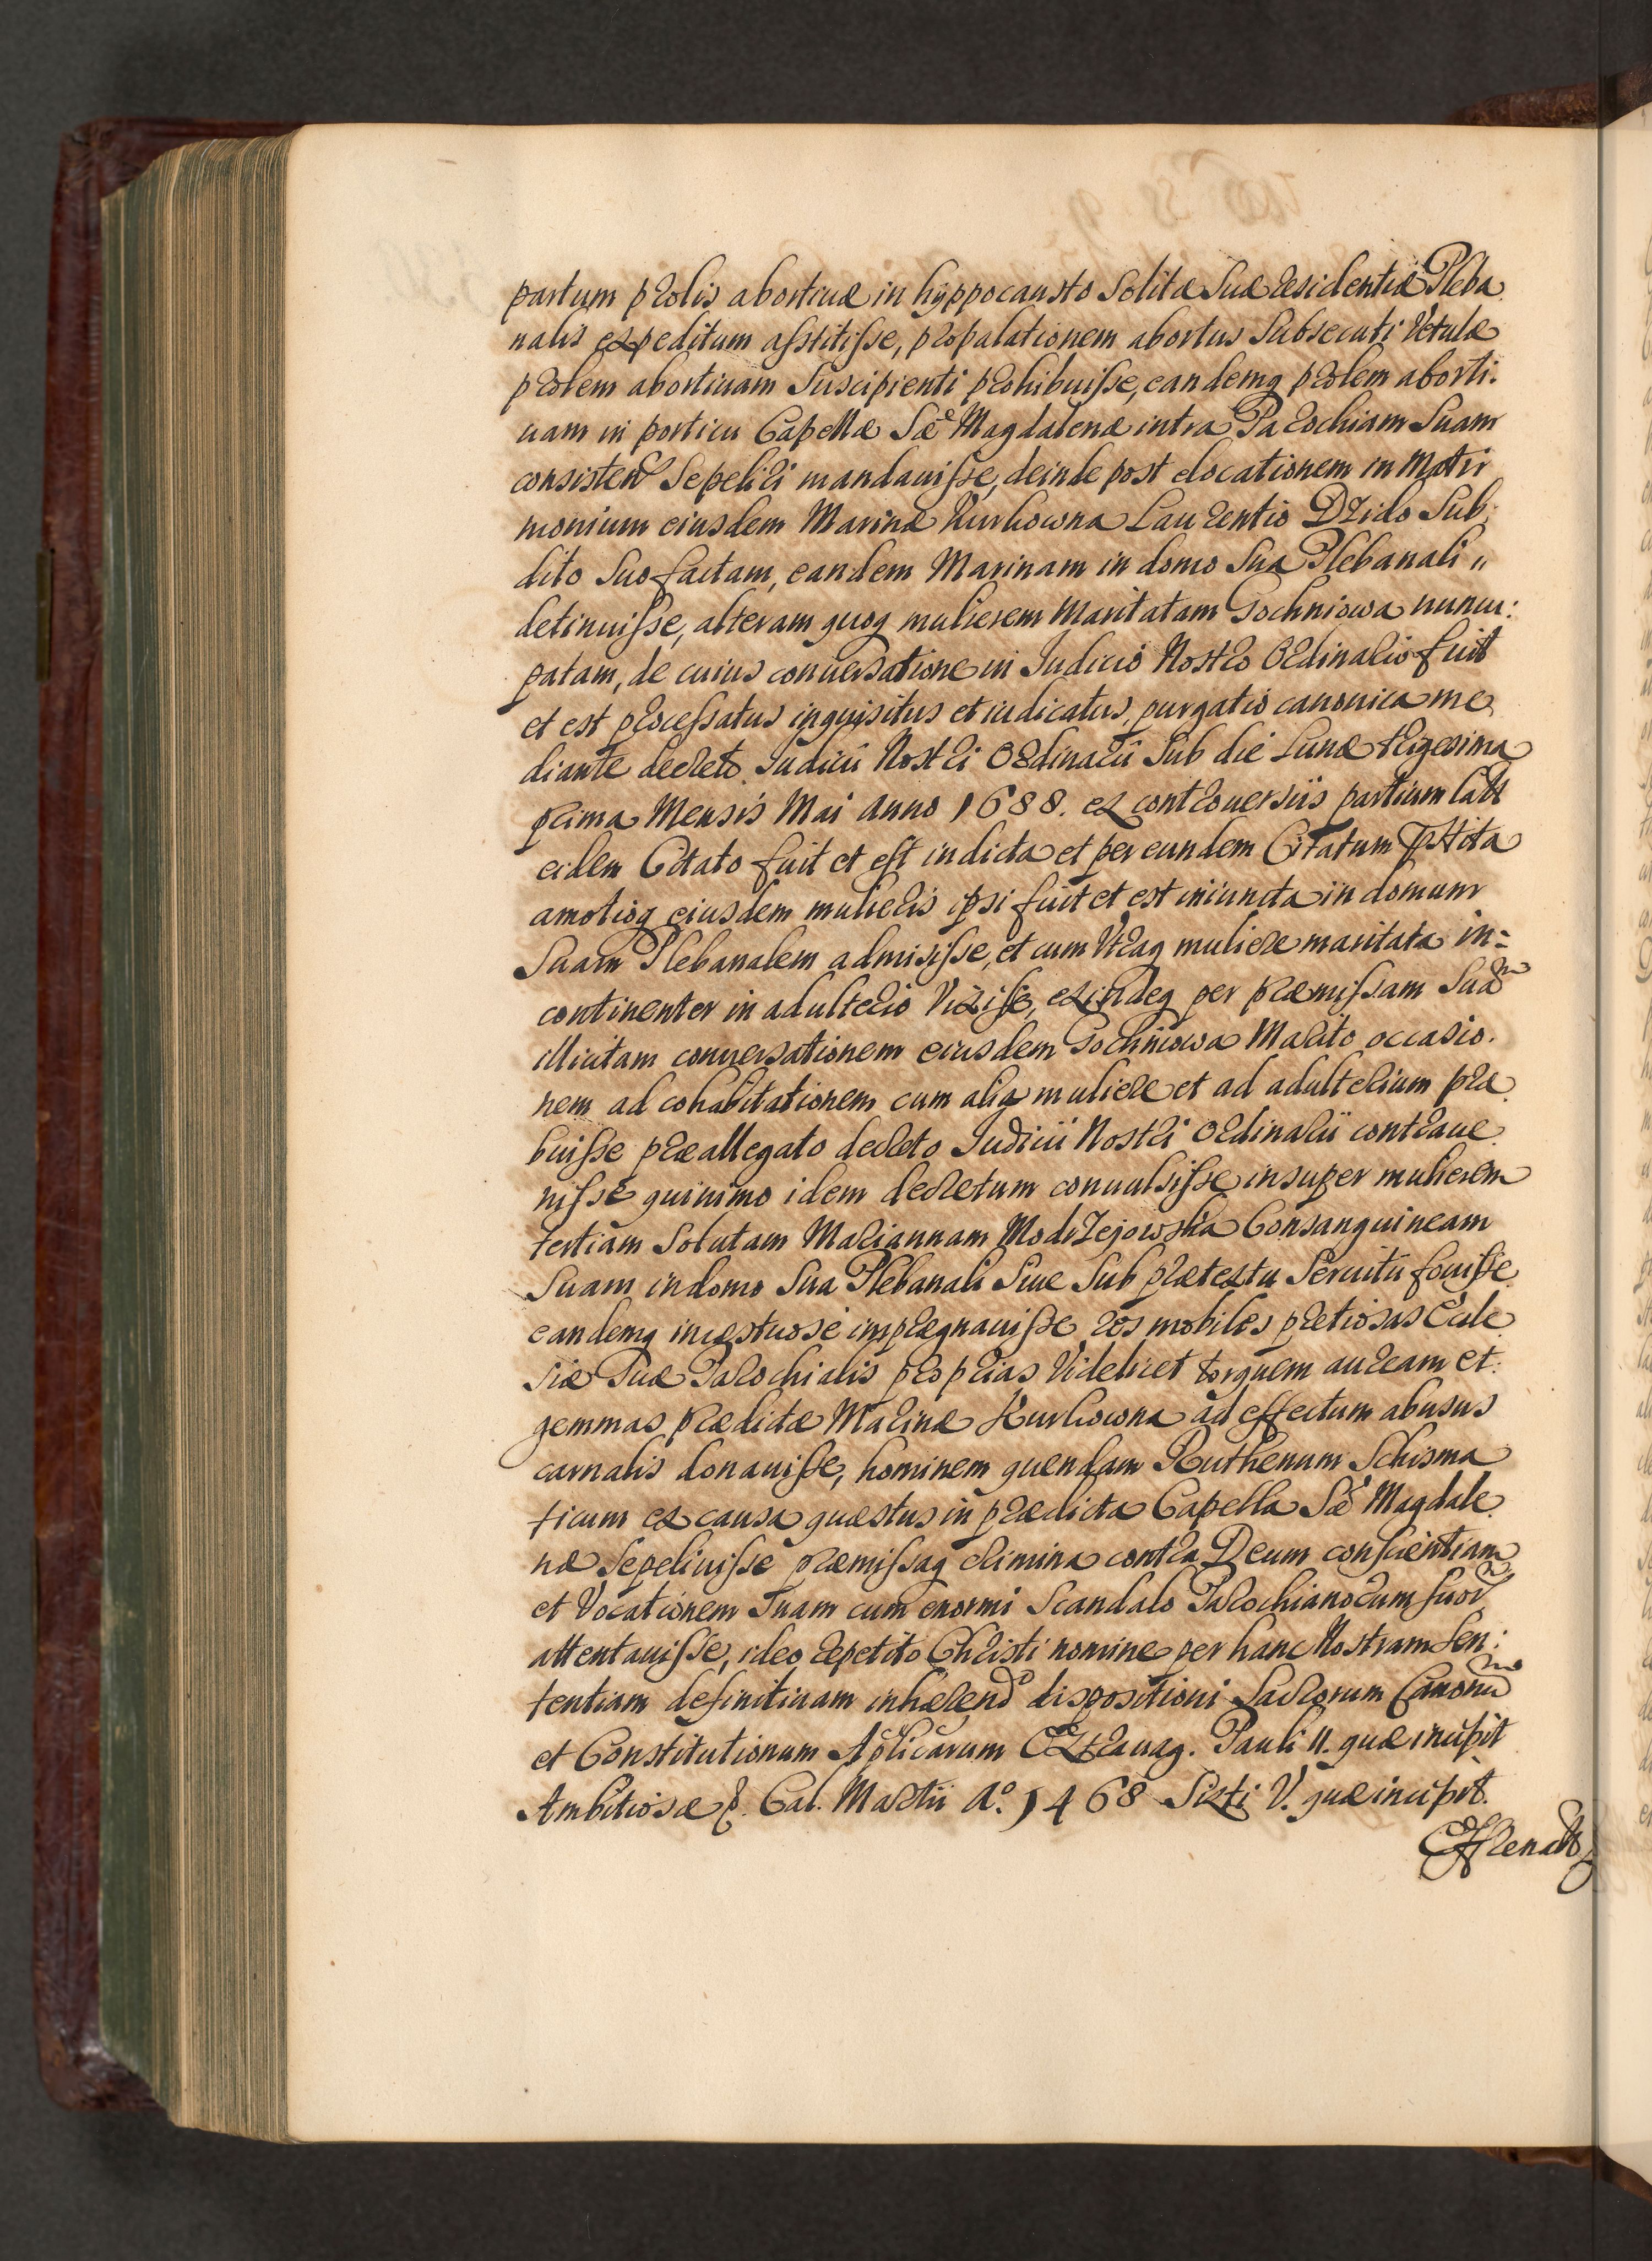 partum prolis abortiuæ in hyppocausto Solitæ Suæ residentiæ Pleba
nalis expeditum asstitisse, propalationem abortus Subsecuti Vetulæ
prolem abortiuam Suscipienti prohibuisse, eandemq prolem aborti.
uam in porticu Capellæ Sæ Magdalenæ intra Parochiam Suam
consisten Sepeliri mandauisse, deinde post elocationem in Matri
monium eiusdem Marinæ Kurkowna Laurentio Dzido Sub
dito Suo factam, eandem Marinam in domo Sua Plebanali„
detinuisse, alteram quoq mulierem Maritatam Gochniowa nuncu:
patam, de cuius conuersatione in Judicio Nostro Ordinario fuit
et est processatus inquisitus et iudicatus, purgatio canonica me
diante decreto Judicii Nostri Ordinarii Sub die Lunæ trigesima
prima Mensis Mai Anno 1688. ex controuersiis partium latt
eidem Citato fuit et est indicta et per eundem Citatum
amotioq eiusdem mulieris ipsi fuit et est iniuncta in domum
Suam Plebanalem admisisse, et cum Vtraq muliere maritata in=
continenter in adulterio Vixisse, exindeq per præmissam Suam
illicitam conuersationem eiusdem Gochniowa Marito occasio.
nem ad cohabitationem cum alia muliere et ad adulterium præ
buisse præallegato decreto Judicii Nostri Ordinarii contraue
nisse quinimo idem decretum conuulsisse insuper mulierem
tertiam Solutam Mariannam Modrzejowska Consanguineam
Suam in domo Sua Plebanali Siue Sub prætextu Seruitii fouisse
eandemq incestuose imprægnauisse res mobiles pretiosas Eccle
siæ Suæ Parochialis proprias Videlicet torquem auream et
gemmas prædictæ Marinæ Kurkowna ad effectum abusus
carnalis donauisse, hominem quendam Ruthenum Schisma
ticum ex causa quæstus in prædicta Capella Sæ Magdale
næ Sepeliuisse præmissaq crimina contra Deum conscientiam
et Vocationem Suam cum enormi Scandalo Parochianorum suor
attentauisse, ideo repetito Christi nomine per hanc Nostram Sen:
tentiam definitiuam inhærendo dispositioni Sacrorum Canonum
et Constitutionum Aplicarum Extrauag. Pauli II. quæ incipit
Ambitiosæ Cal. Martii Aº. 1468 Sixti V. quæ incipit.
Effrenatt